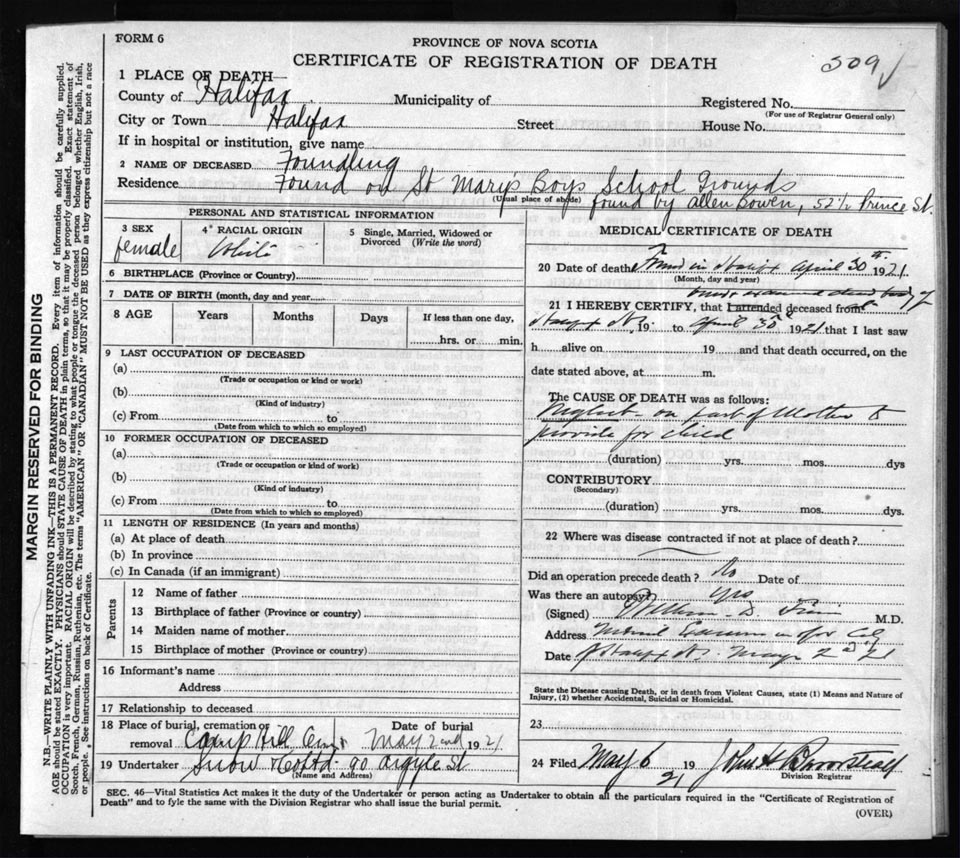 FORM 6
PROVINCE OF NOVA SCOTIA
CERTIFICATE OF REGISTRATION OF DEATH
309
1 PLACE OF DEATH—
County of Halifax Municipality of Registered No.
(For use of Registrar General only)
City or Town Halifax Street House No.
If in hospital or institution, give name
2 NAME OF DECEASED Foundling
Residence Found on St Mary's Boys School Grounds
(Usual place of abode) found by Allen Bowen, 52½ Prince St.
PERSONAL AND STATISTICAL INFORMATION
3 SEX 4 RACIAL ORIGIN 5 Single, Married, Widowed or
Divorced (Write the word)
female White
6 BIRTHPLACE (Province or Country)
7 DATE OF BIRTH (month, day and year)
8 AGE Years Months Days If less than one day,
hrs. or min.
9 LAST OCCUPATION OF DECEASED
(a)
(Trade or occupation or kind or work)
(b)
(Kind of industry)
(c) From to
(Date from which to which so employed)
10 FORMER OCCUPATION OF DECEASED
(a)
(Trade or occupation or kind of work)
(b)
(Kind of industry)
(c) From to
(Date from which to which so employed)
11 LENGTH OF RESIDENCE (In years and months)
(a) At place of death
(b) In province
(c) In Canada (if an immigrant)
Parents
12 Name of father
13 Birthplace of father (Province or country)
14 Maiden name of mother
15 Birthplace of mother (Province or country)
16 Informant's name
Address
17 Relationship to deceased
18 Place of burial, cremation or Date of burial
removal Camp Hill Cem May 2nd 1921
19 Undertaker Snow & Co Ltd 90 Argyle St
(Name and Address)
MEDICAL CERTIFICATE OF DEATH
20 Date of death Found in Halifax April 30th 1921
(Month, day and year)
dead body of
21 I HEREBY CERTIFY, that I attended deceased from at
Halifax N.S. 19 to April 30th 1921 that I last saw
h alive on 19 and that death occurred, on the
date stated above, at m.
The CAUSE OF DEATH was as follows:
Neglect on part of Mother to
provide for child
(duration) yrs. mos. dys
CONTRIBUTORY
(Secondary)
(duration) yrs. mos. dys.
22 Where was disease contracted if not at place of death?
Did an operation precede death? No Date of
Was there an autopsy? Yes
(Signed) William D. Finn M.D.
Address Medical Examiner for City
Date of Halifax N.S. May 2nd 21
State the Disease causing Death, or in death from Violent Causes, state (1) Means and Nature of
Injury, (2) whether Accidental, Suicidal or Homicidal.
23
24 Filed May 6 19 21 John
Division Registrar
SEC. 46—Vital Statistics Act makes it the duty of the Undertaker or person acting as Undertaker to obtain all the particulars required in the "Certificate of Registration of
Death" and to fyle the same with the Division Registrar who shall issue the burial permit.
(OVER)
MARGIN RESERVED FOR BINDING
N.B.—WRITE PLAINLY WITH UNFADING INK—THIS IS A PERMANENT RECORD. Every item of information should be carefully supplied.
AGE should be stated EXACTLY. PHYSICIANS should STATE CAUSE OF DEATH in plain terms, so that it may be properly classified. Exact statement of
OCCUPATION is very important. RACIAL ORIGIN will be described by stating to what people or tongue the deceased person belonged whether English, Irish,
Scotch, French, German, Russian, Ruthenian, etc. The terms "AMERICAN" OR "CANADIAN" MUST NOT BE USED as they express citizenship but not a race
or people. See instructions on back of Certificate.